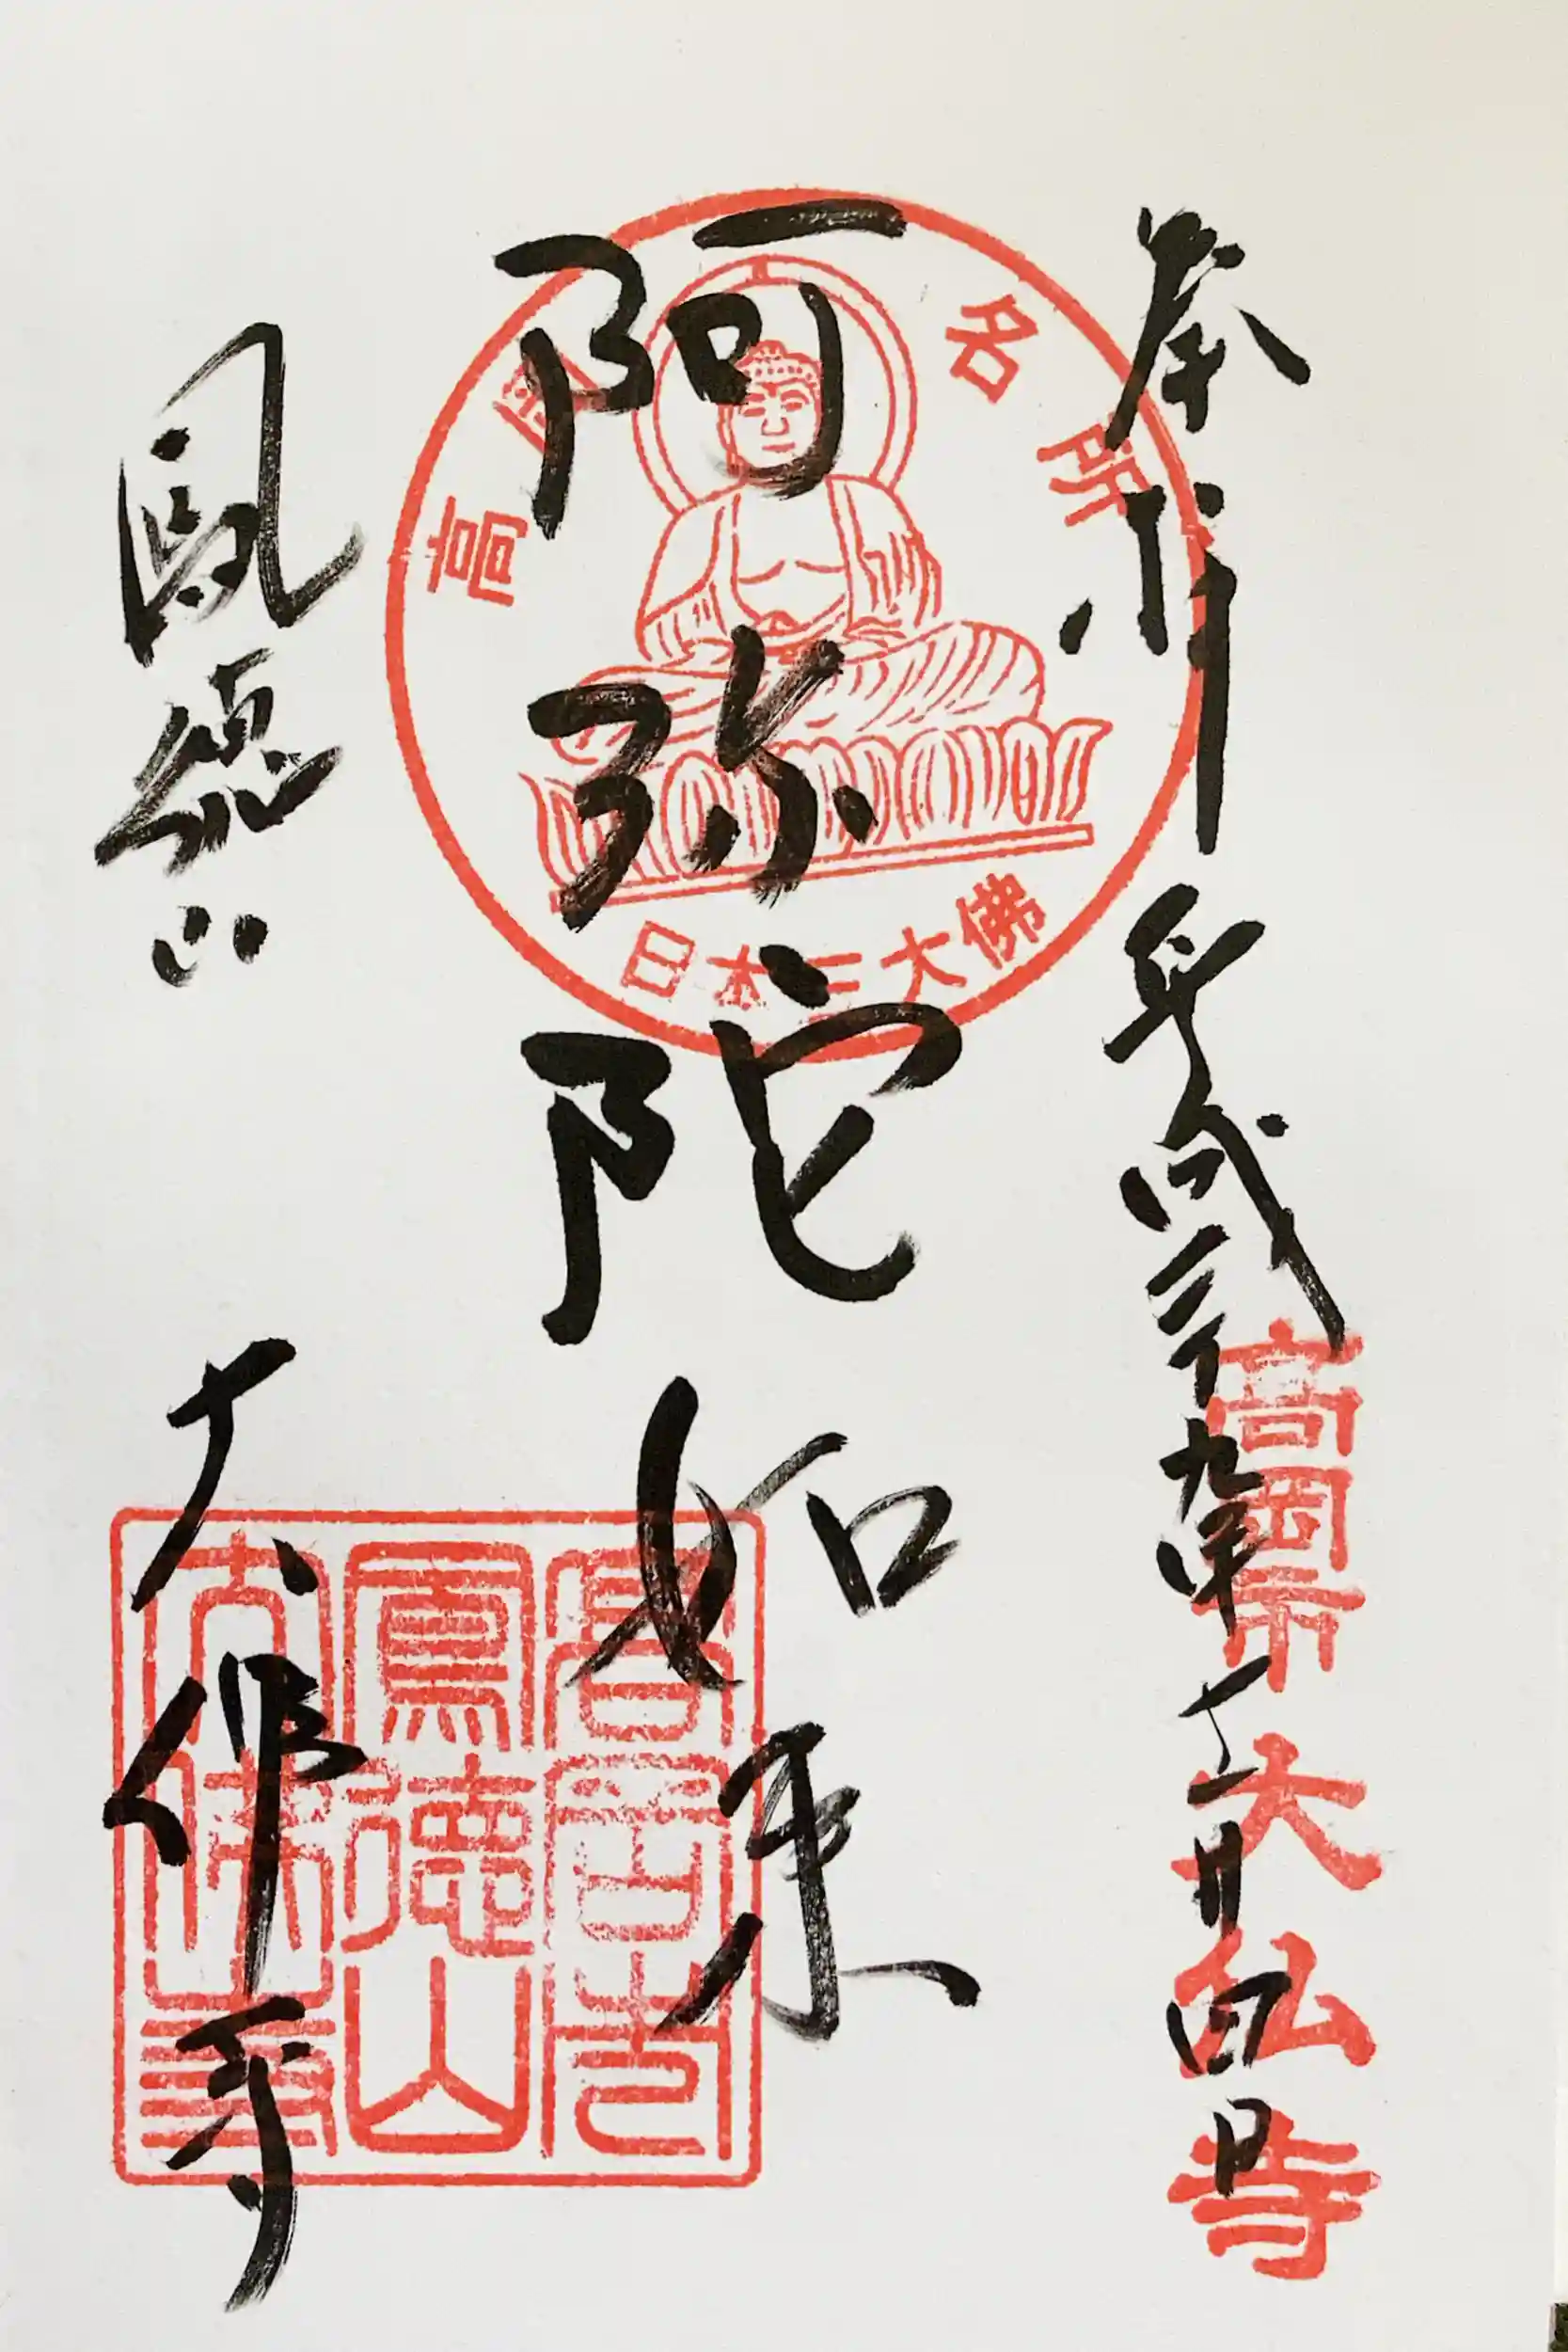 奉拝
平成二十九年十一月四日
高岡市大仏寺
高岡名所
日本三大佛
阿弥陀如来
鳳徳山
大佛寺
鳳徳山